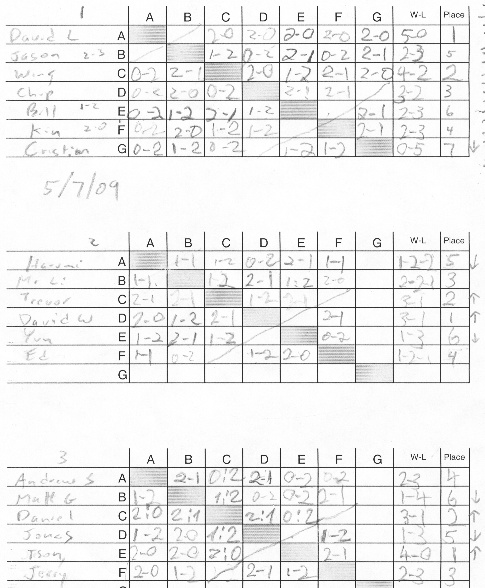 1 A B C D E F G W-L Place
David L A 2-0 2-0 2-0 2-0 2-0 5-0 1
Jason 2-3 B 1-2 0-2 2-1 0-2 2-1 2-3 5
Wing C 0-2 2-1 2-0 1-2 2-1 2-0 4-2 2
Chip D 0-2 2-0 0-2 2-1 2-1 3
Bill 1-2 E 0-2 1-2 2-1 1-2 2-1 2-3 6
Kin 2-0 F 0-2 2-0 1-2 1-2 2-1 2-3 4
Cristian G 0-2 1-2 0-2 1-2 1-2 0-5 7 ↓
5/7/09
2 A B C D E F G W-L Place
A 1-1 1-2 0-2 2-1 1-1 5 ↓
Mr Li B 1-1 1-2 2-1 1:2 2-0 3
Trevor C 2-1 2-1 1-2 2-1 3-1 2 ↑
David W D 2-0 1-2 2-1 2-1 3-1 1 ↑
Yun E 1-2 2-1 1-2 0-2 1-3 6 ↓
Ed F 1-1 0-2 1-2 2-0 4
G
3 A B C D E F G W-L Place
Andrew S A 2-1 0:2 2-1 0-2 0-2 2-3 4
Matt G B 1-2 1:2 0-2 0-2 2-1 1-4 6 ↓
Daniel C 2:0 2:1 2:1 0:2 3-1 2 ↑
Jonas D 1-2 2-0 1:2 1-2 1-3 5 ↓
Tson E 2-0 2-0 2:0 2-1 4-0 1 ↑
Jerry F 2-0 1-2 2-1 1-2 2-3 3